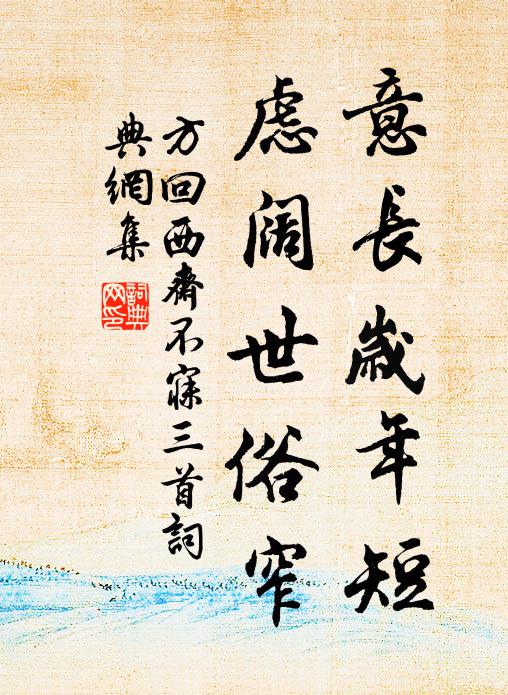 意長歲年短
慮阔世俗窄
方回西齋不寐三首詞
典網集
詞典
网印